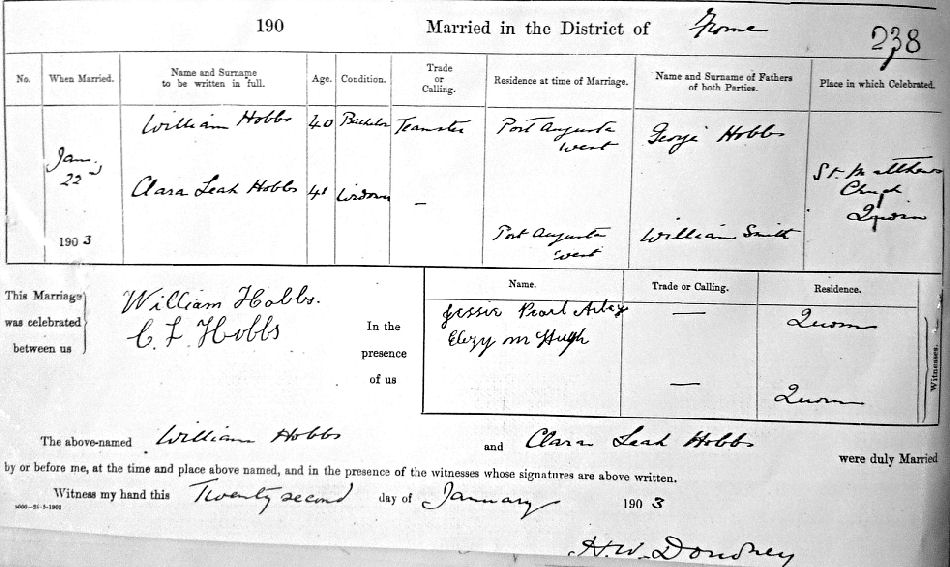 190 Married in the District of Frome 238
No. When Married. Name and Surname to be written in full. Age. Condition. Trade or Calling. Residence at time of Marriage. Name and Surname of Fathers of both Parties. Place in which Celebrated.
William Hobbs 40 Bachelor Teamster Port Augusta West George Hobbs
Jan. 22nd
1903
Clara Leah Hobbs 41 Widow — Port Augusta West William Smith
St. Matthews Church Quorn
This Marriage was celebrated between us
William Hobbs.
C. L. Hobbs
In the presence of us
Name. Trade or Calling. Residence.
Jessie Pearl — Quorn
McHugh — Quorn
Witnesses.
The above-named William Hobbs and Clara Leah Hobbs were duly Married
by or before me, at the time and place above named, and in the presence of the witnesses whose signatures are above written.
Witness my hand this Twenty second day of January 1903
H. W. Doudney